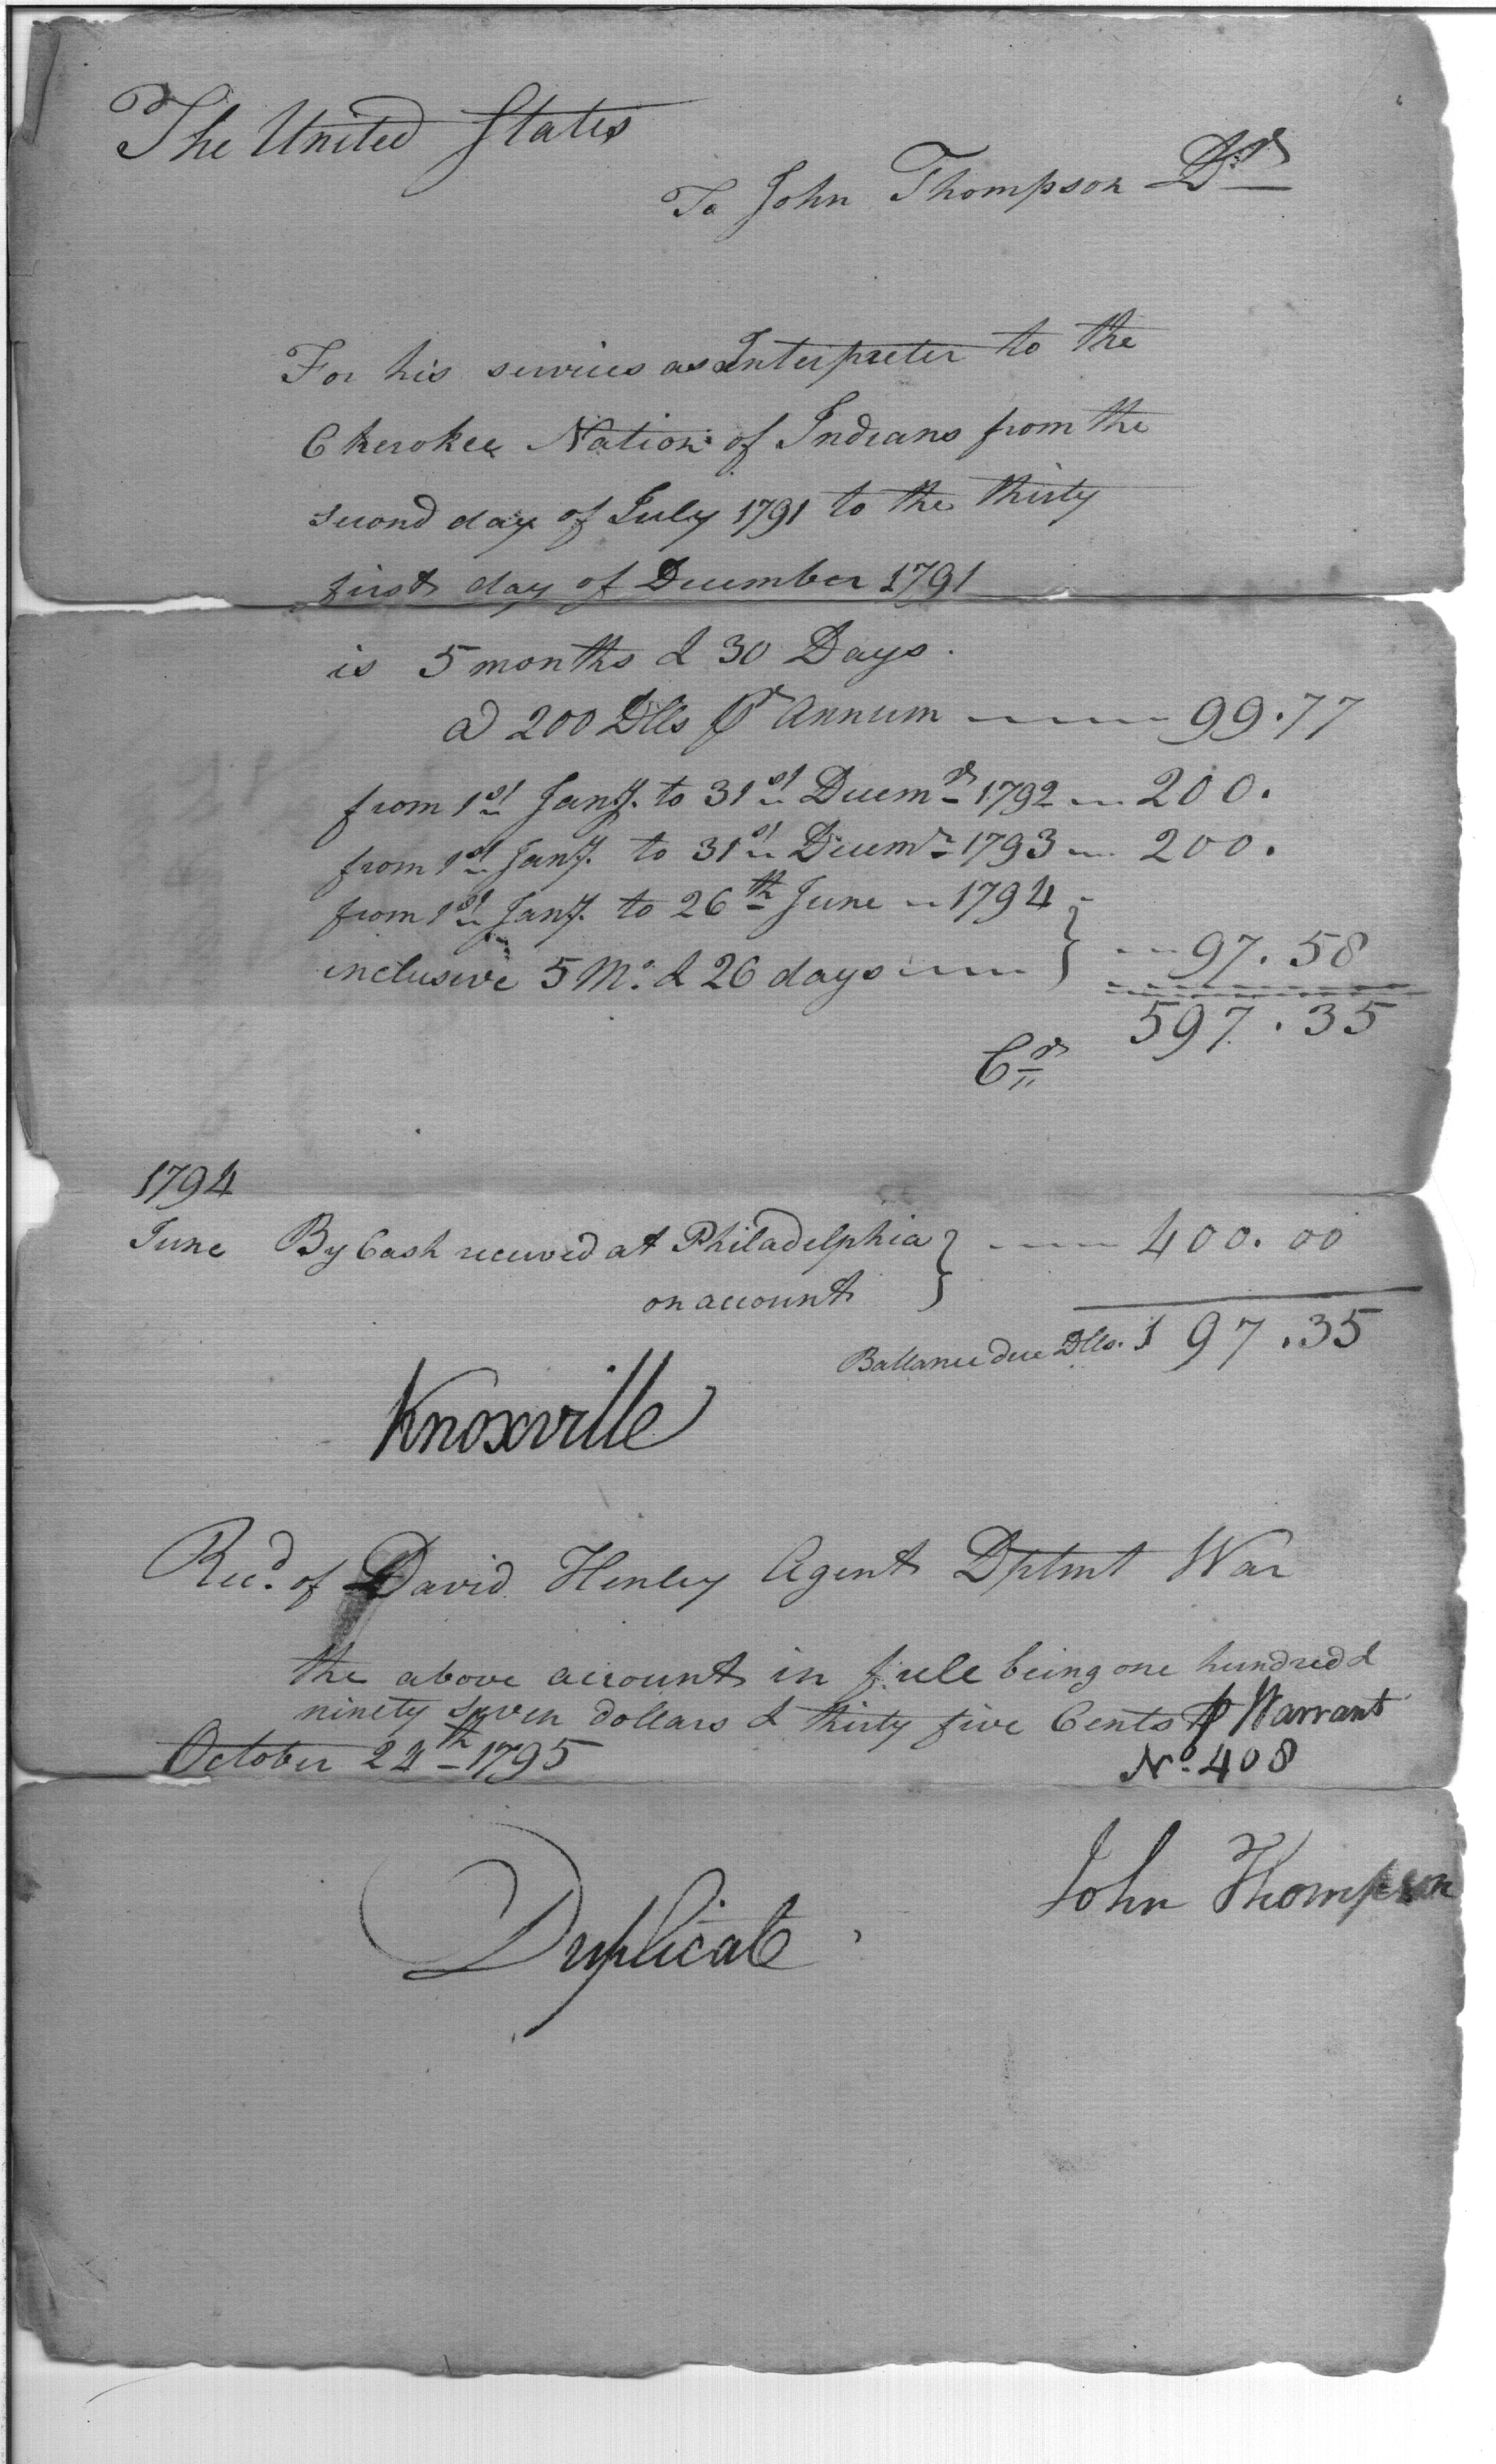 The United States
To John Thompson Dr
For his services as Interpreter to the
Cherokee Nation of Indians from the
second day of July 1791 to the thirty
first day of December 1791
is 5 months & 30 Days.
a 200 Dlls pr Annum 99.77
from 1st Jany. to 31st Decemr 1792 200.
from 1st Jany. to 31st Decemr 1793 200.
from 1st Jany. to 26th June 1794
inclusive 5 Mo. & 26 days 97.58
597.35
Cr
1794
June By Cash received at Philadelphia 400.00
on account
Ballance due Dlls. 197.35
Knoxville
Recd. of David Henley Agent Dptmt War
the above account in full being one hundred &
ninety seven dollars & thirty five Cents p Warrant
October 24th 1795 No. 408
John Thompson
Duplicate